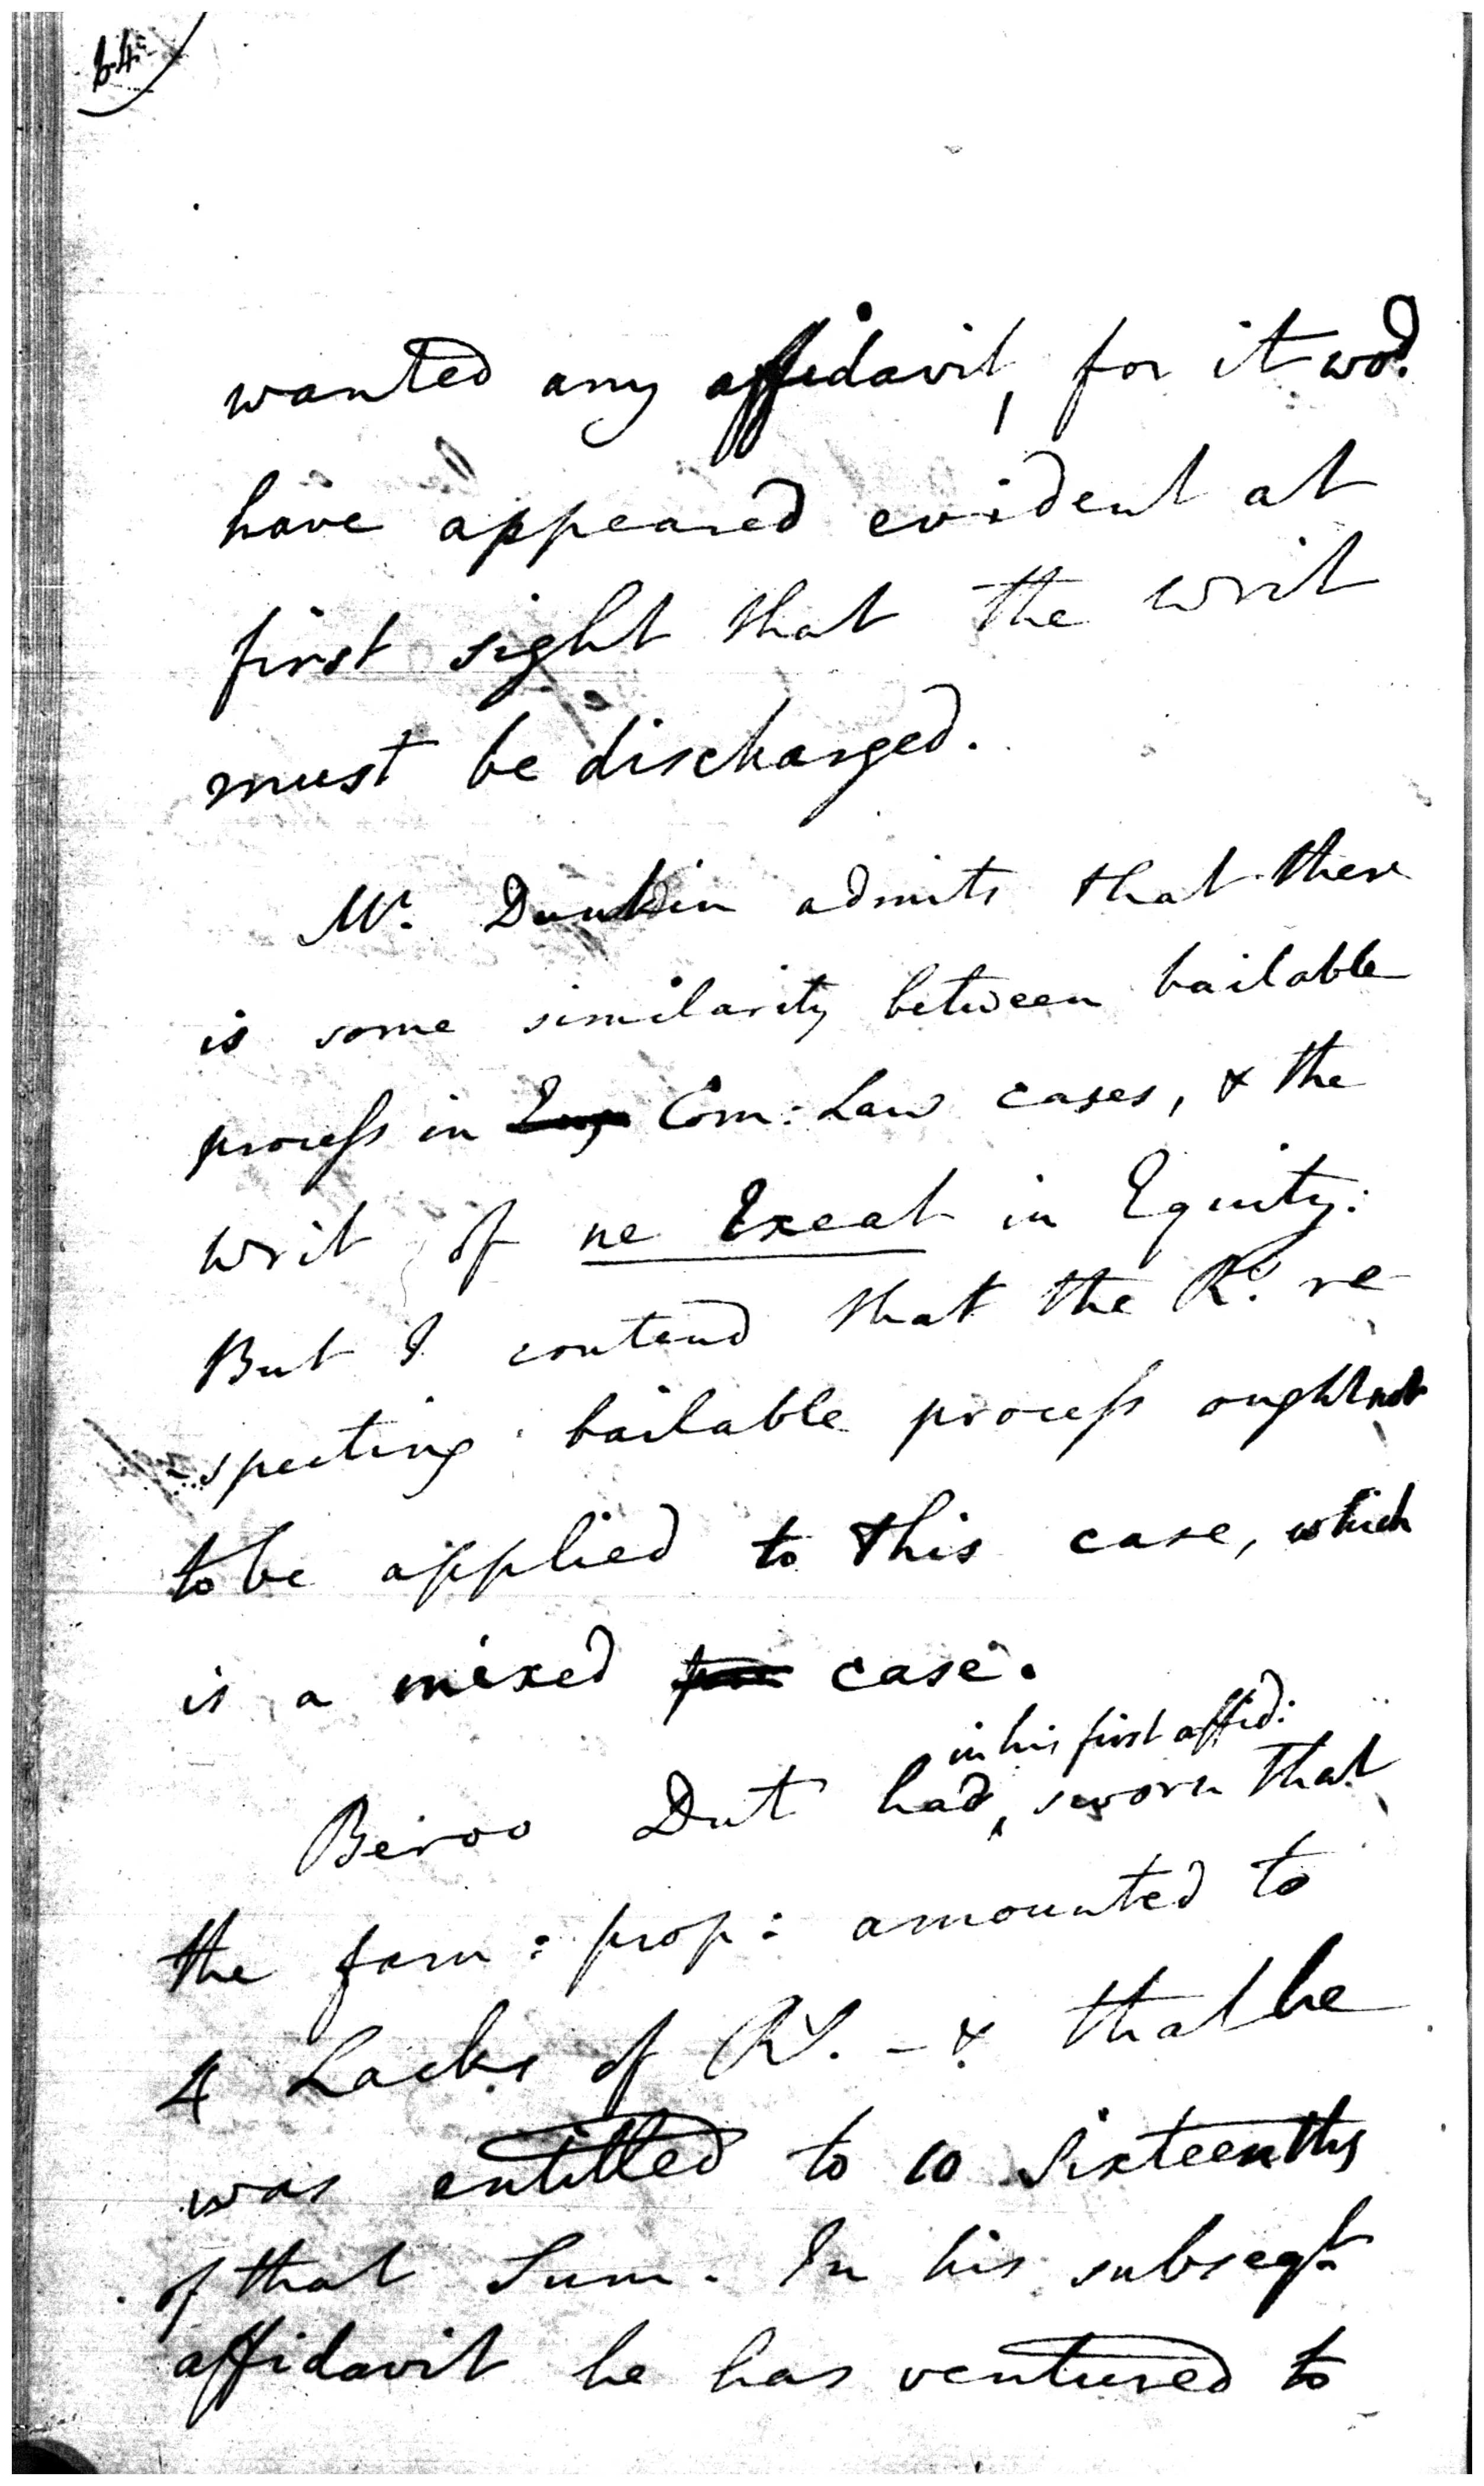 64
wanted any affidavit, for it wod.
have appeared evident at
first sight that the writ
must be discharged.
Mr. Dunkin admits that there
is some similarity between bailable
process in Com: Law cases, & the
writ of ne Exeat in Equity:
But I contend that the R. re
-specting bailable process ought not
to be applied to this case, which
is a mixed case.
in his first affid:
Beiroo Dut had sworn that
the fam: prop: amounted to
4 Lacks of Rs. - & that he
was entitled to 10 Sixteenths
of that Sum. In his subseqt
affidavit he has ventured to